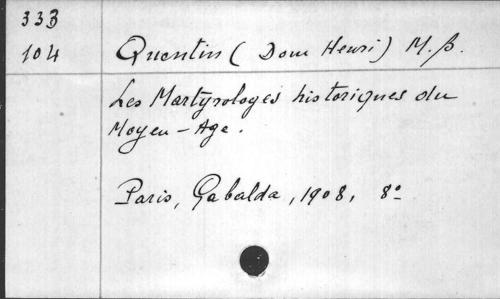 333
104 Quentin (Dom Henri) M. B.
Les Martyrologes historiques du
Moyen-Age.
Paris, Gabalda, 1908, 8º